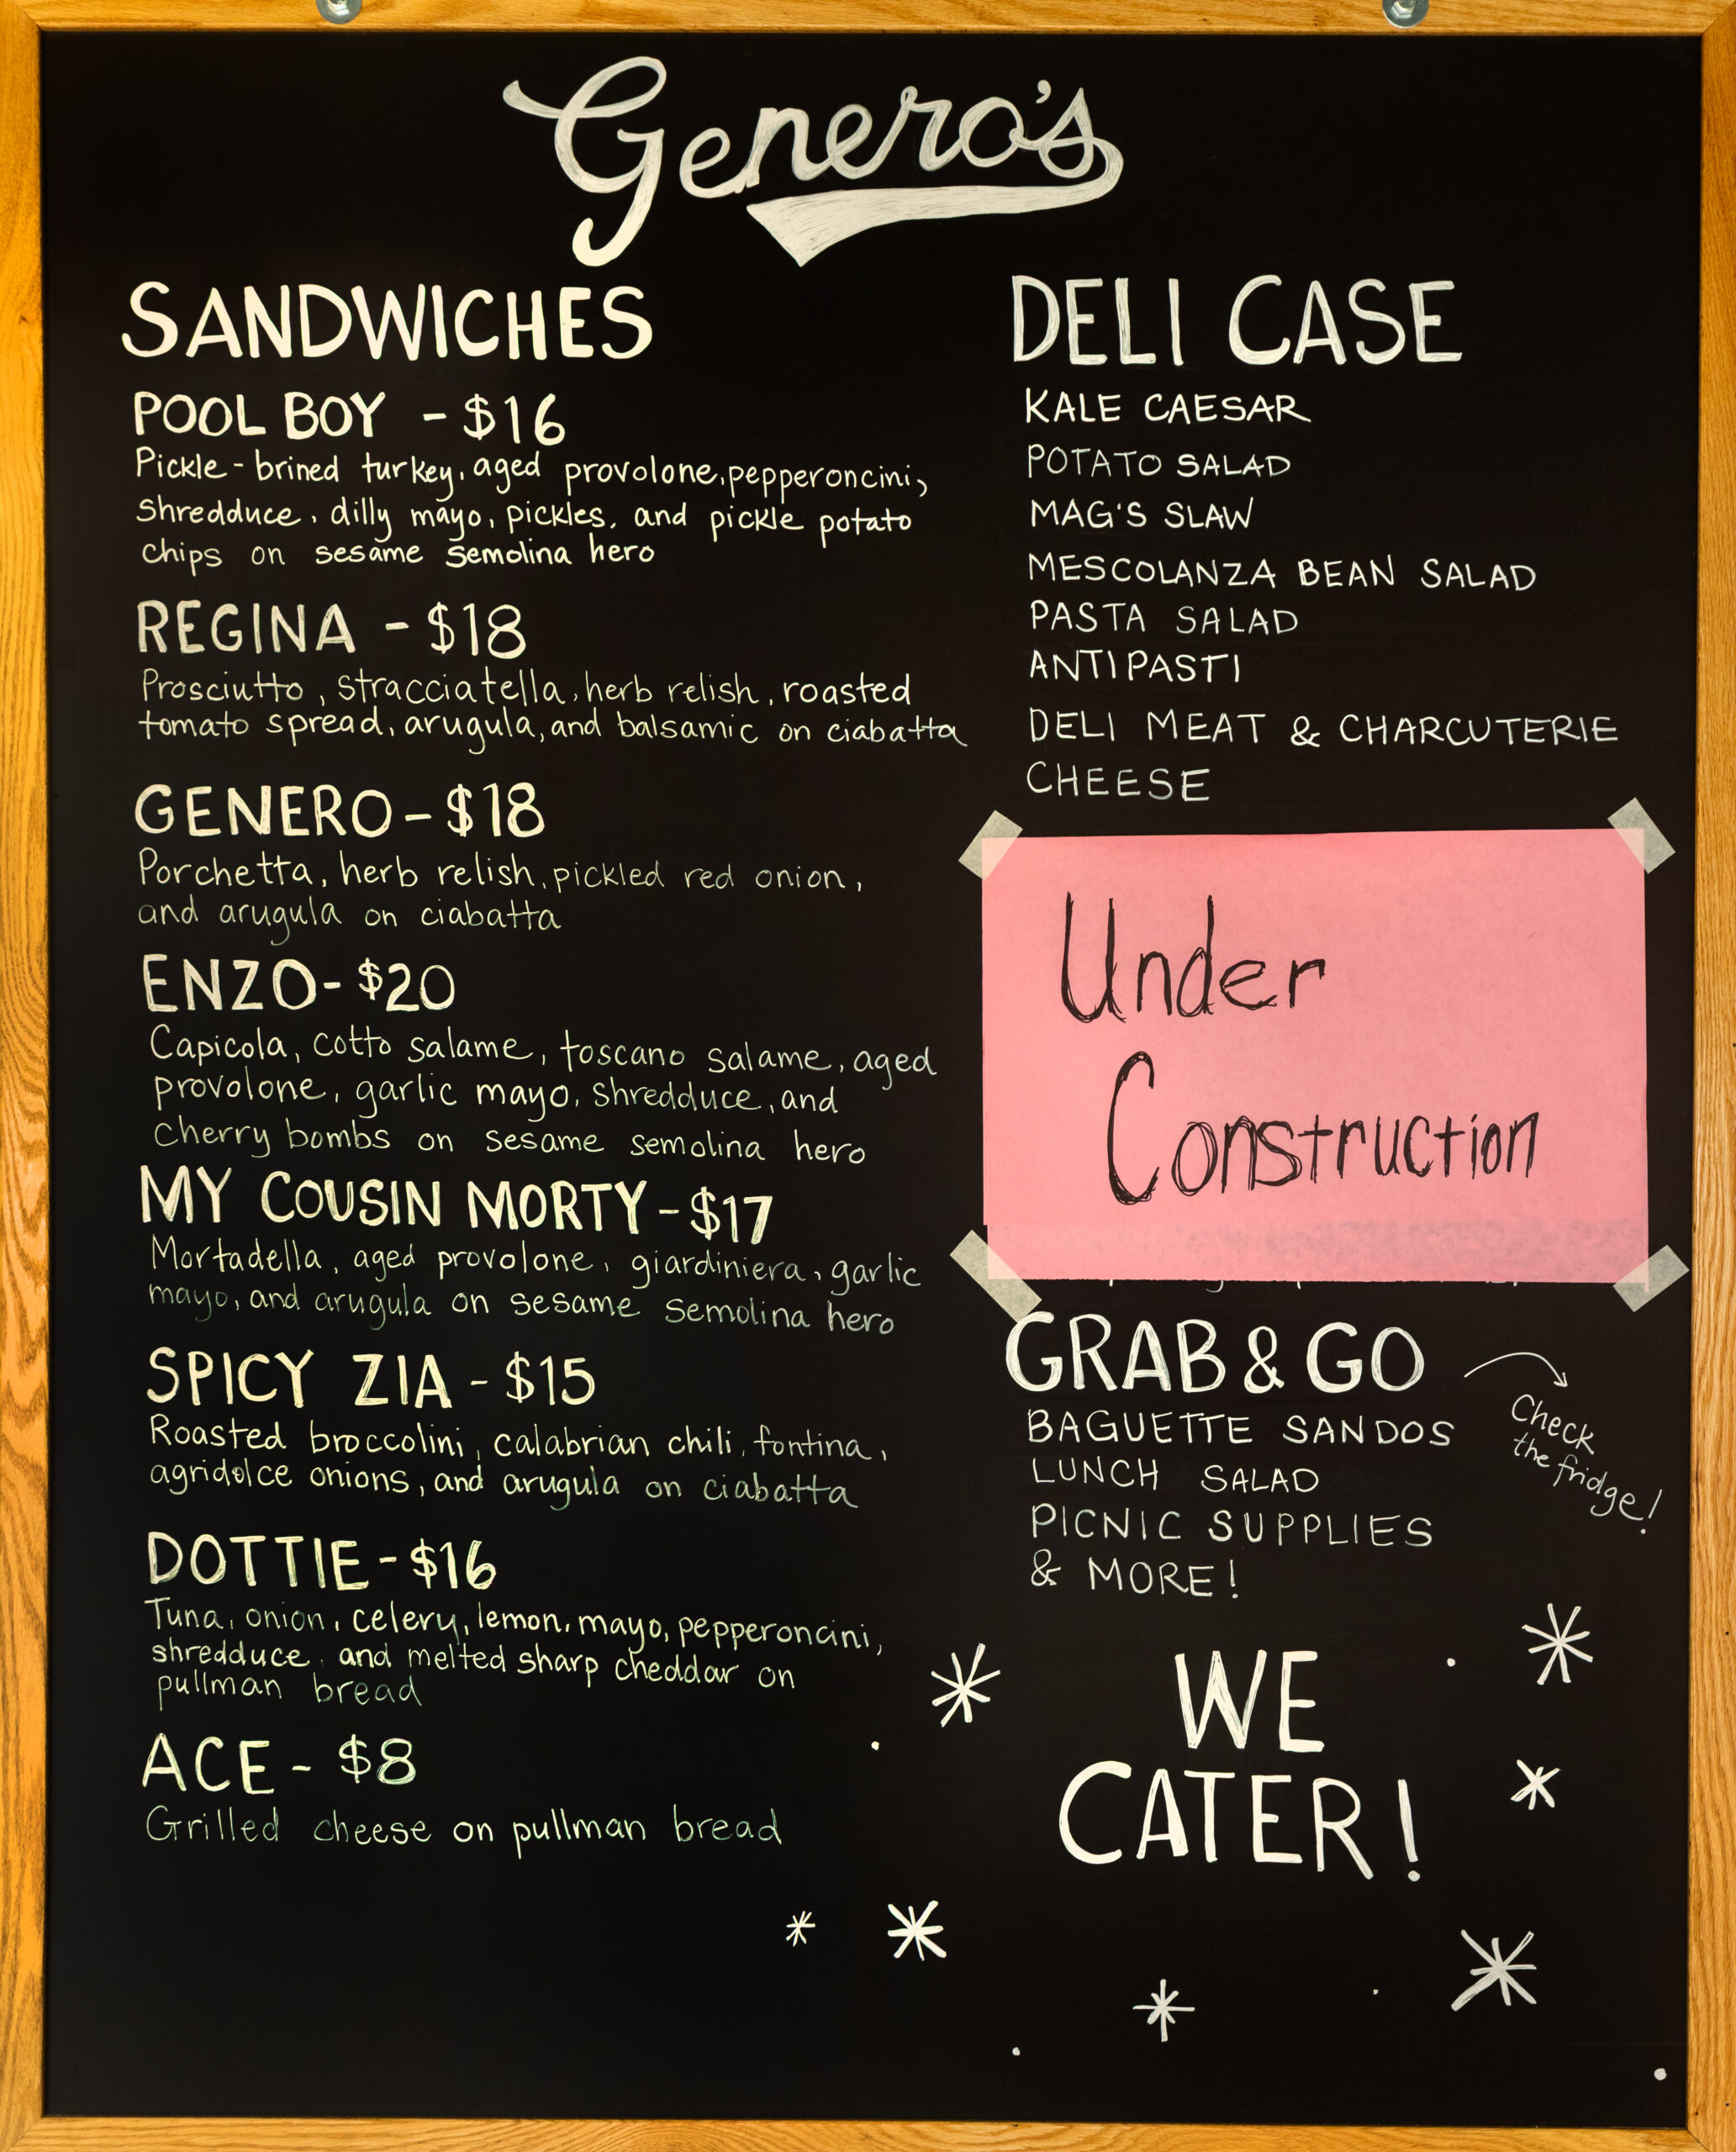 Genero's
SANDWICHES
POOL BOY - $16
Pickle-brined turkey, aged provolone, pepperoncini,
shredduce, dilly mayo, pickles, and pickle potato
chips on sesame semolina hero
REGINA - $18
Prosciutto, stracciatella, herb relish, roasted
tomato spread, arugula, and balsamic on ciabatta
GENERO - $18
Porchetta, herb relish, pickled red onion,
and arugula on ciabatta
ENZO - $20
Capicola, cotto salame, toscano salame, aged
provolone, garlic mayo, shredduce, and
cherry bombs on sesame semolina hero
MY COUSIN MORTY - $17
Mortadella, aged provolone, giardiniera, garlic
mayo, and arugula on sesame semolina hero
SPICY ZIA - $15
Roasted broccolini, calabrian chili, fontina,
agridolce onions, and arugula on ciabatta
DOTTIE - $16
Tuna, onion, celery, lemon, mayo, pepperoncini,
shredduce, and melted sharp cheddar on
pullman bread
ACE - $8
Grilled cheese on pullman bread
DELI CASE
KALE CAESAR
POTATO SALAD
MAG'S SLAW
MESCOLANZA BEAN SALAD
PASTA SALAD
ANTIPASTI
DELI MEAT & CHARCUTERIE
CHEESE
Under
Construction
GRAB & GO
Check
the fridge!
BAGUETTE SANDOS
LUNCH SALAD
PICNIC SUPPLIES
& MORE!
WE
CATER!